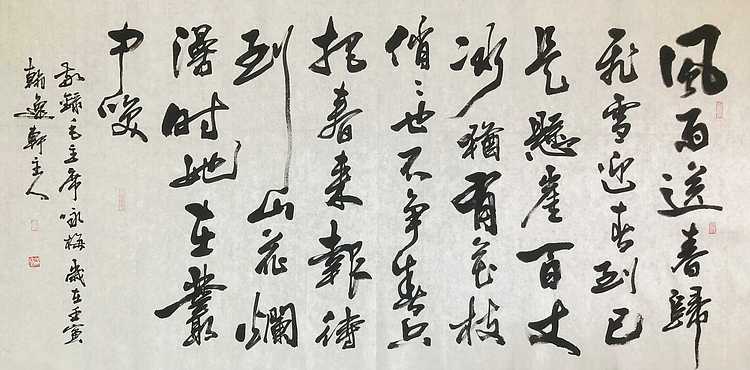 風雨送春歸
飛雪迎春到已
是懸崖百丈
冰猶有花枝
俏〻也不争春只
把春来報待
到山花爛
漫時她在叢
中笑
敬録毛主席咏梅歲在壬寅
翰逸軒主人